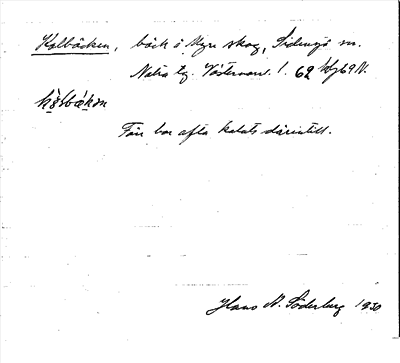 Kolbäcken, bäck å Myre skog, Sidensjö sn.
Nätra tg. Västernorrl. l. 62
ko̤lbækɷn
Förr har ofta kolats därintill.
Hans N. Söderberg 1930